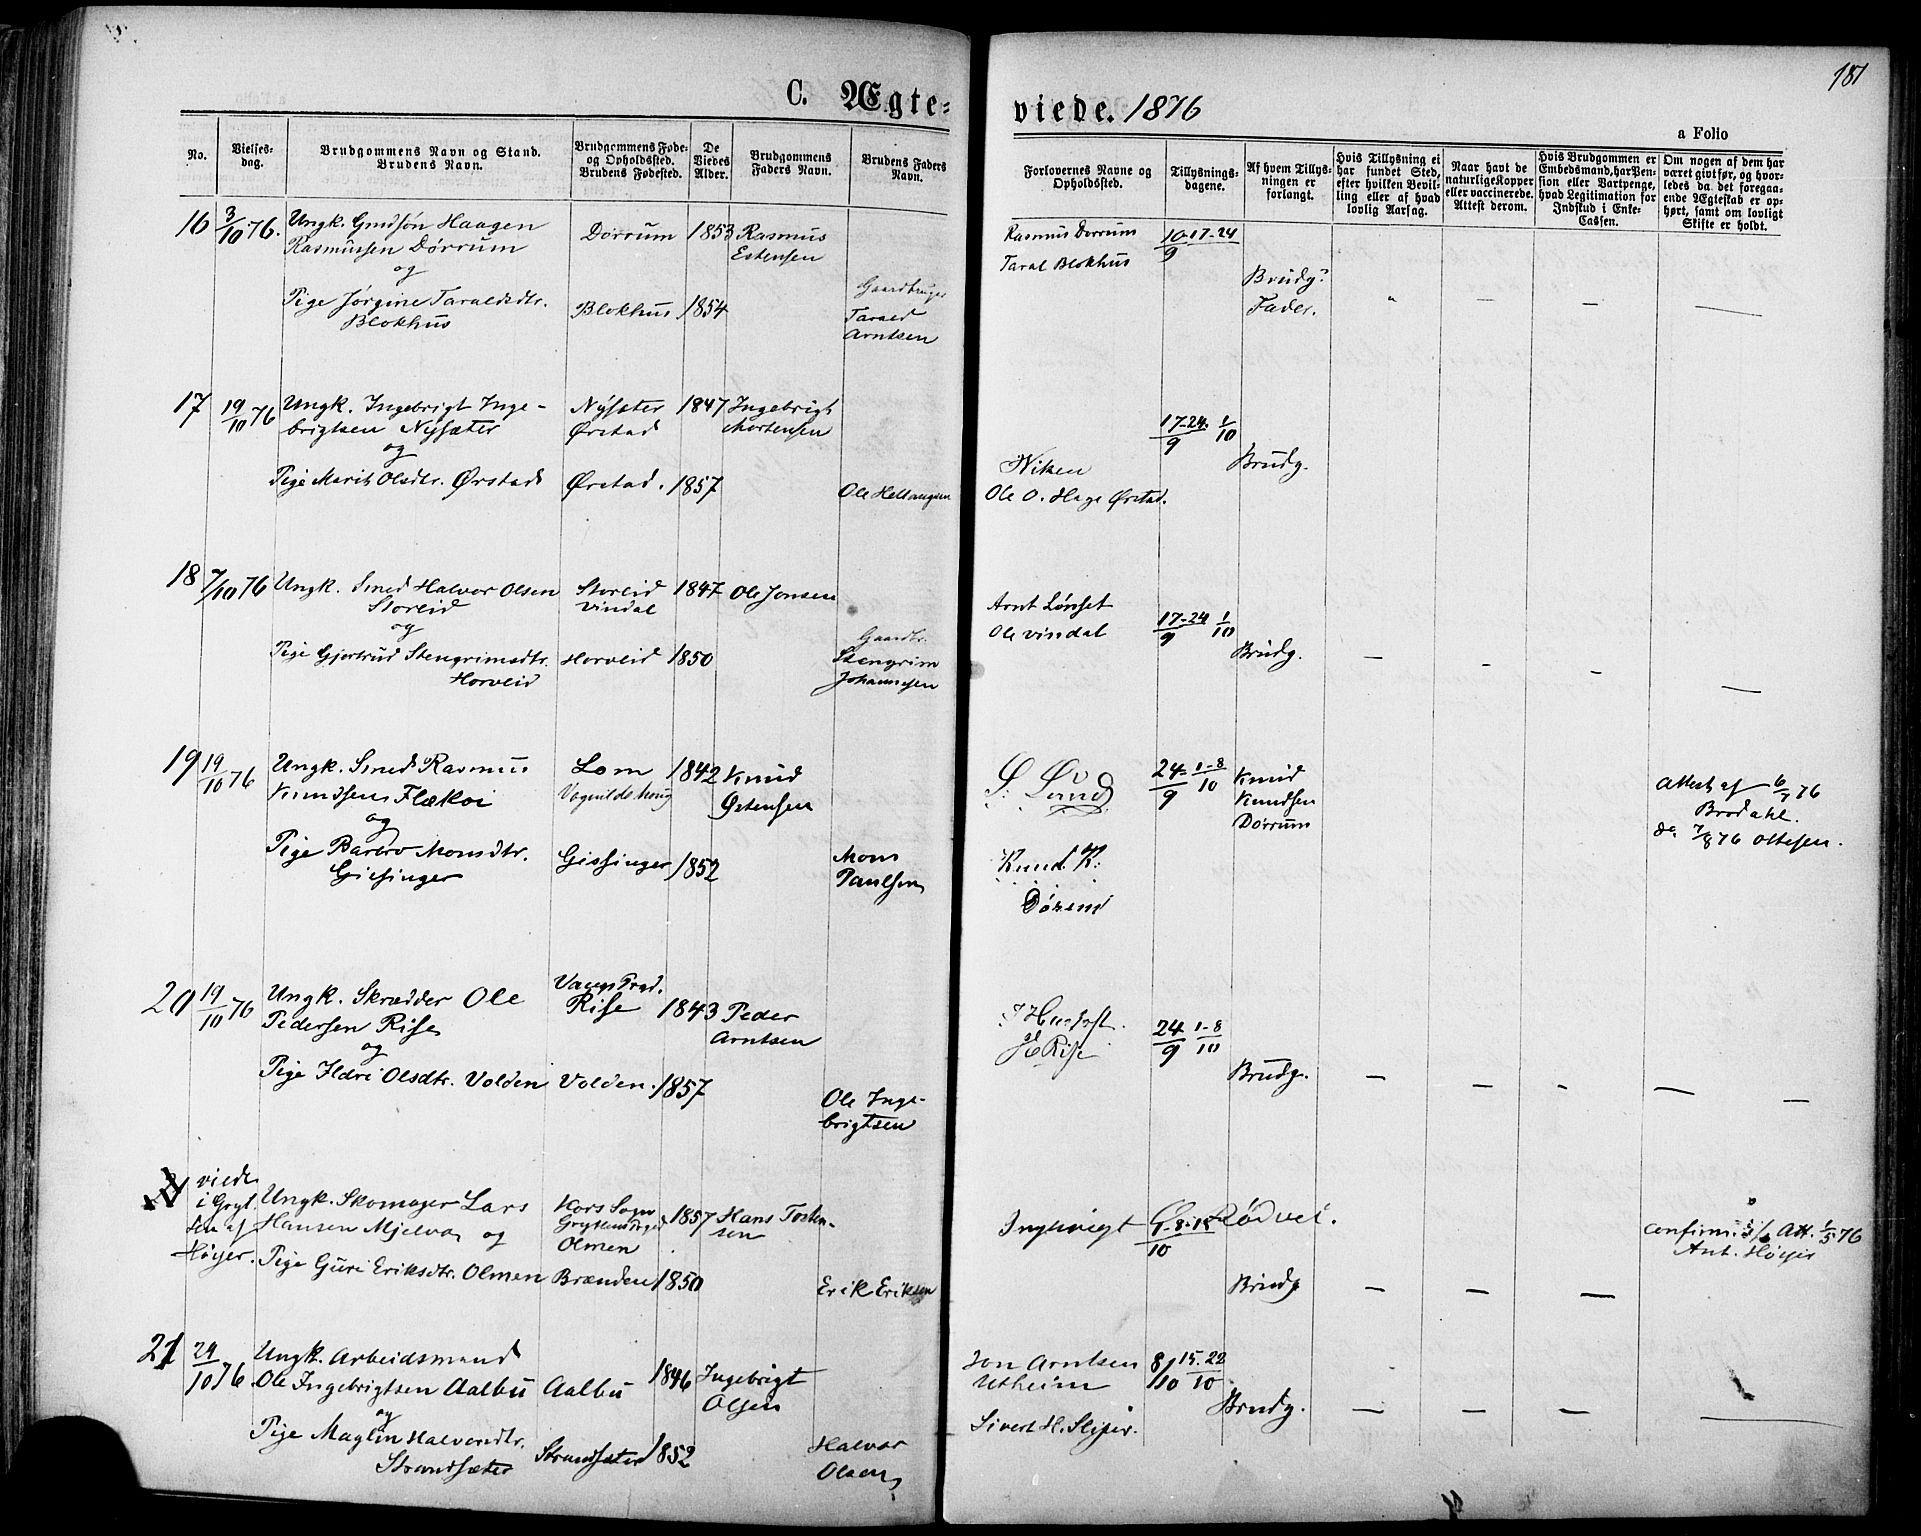 181
C. Ægte= viede. 1876
a Folio
No.
Vielses-
dag.
Brudgommens Navn og Stand.
Brudens Navn.
Brudgommens Føde-
og Opholdssted.
Brudens Fødested.
De
Viedes
Alder.
Brudgommens
Faders Navn.
Brudens Faders
Navn.
Forlovernes Navne og
Opholdssted.
Tillysnings-
dagene.
Af hvem Tillys-
ningen er
forlangt.
Hvis Tillysning ei
har fundet Sted,
efter hvilken Bevil-
ling eller af hvad
lovlig Aarsag.
Naar havt de
naturlige Kopper
eller vaccinerede.
Attest derom.
Hvis Brudgommen er
Embedsmand, har Pen-
sion eller Vartpenge,
hvad Legitimation for
Indskud i Enke-
Cassen.
Om nogen af dem har
været gift før, og hvor-
ledes da det foregaa-
ende Ægteskab er op-
hørt, samt om lovligt
Skifte er holdt.
16 3/10 76. Ungk. Gmdsøn Haagen Dørrum 1853 Rasmus
Rasmussen Dørrum Estensen
og
Pige Jørgine Taraldsdtr. Blokhus 1854 Gaardbruger
Blokhus Tarald
Arntsen
Rasmus Dørrum 10-17-24/9
Taral Blokhus
Brudg?
Fader.
17 19/10 76 Ungk. Ingebrigt Inge- Nysæter 1847 Ingebrigt
brigtsen Nysæter Ørstad Mortensen
og
Pige Marit Olsdtr. Ørstad Ørstad. 1857 Ole Hellaugsen
17-24/9 1/10
Brudg.
Wiken
Ole O. Hage Ørstad.
18 7/10 76 Ungk. Smed Halvor Olsen Storeid 1847 Ole Jonsen
Storeid Vindal
og
Pige Gjertrud Stengrimsdtr. Horveid 1850 Gaardbr.
Horveid Stengrim
Johannesen
Arnt Lønset 17-24/9 1/10
Ole Vindal
Brudg.
19 19/10 76 Ungk. Smed Rasmus Lom 1842 Knud
Knudsen Flækoi Vognildshaug Østensen
og
Pige Barbro Monsdtr. Gissinger 1852 Mons
Gissinger Paulsen
Lund 24/9 1-8/10 Knud
Knudsen
Dørrum
Knud. K.
Dörem
Attest af 6/7 76
Brodahl.
do 7/8 76 Ottesen.
20 19/10 76 Ungk. Skrædder Ole Rise 1843 Peder
Pedersen Rise Arntsen
og
Pige Ildri Olsdtr. Volden Volden. 1857 Ole Inge-
brigtsen
Rise 24/9 1-8/10
Brudg.
viede
i Gryt.
ten af
Høyer.
Ungk. Skomager Lars Kors Sogn 1857 Hans Tosten-
Hansen Mjelva og Olmen sen
Pige Guri Eriksdtr. Olmen Brænden 1850 Erik Eriksen
Rødvei.
Brudg
Att. 1/5 76
Ant. Høyer
21 24/10 76 Ungk. Arbeidsmand
Ole Ingebrigtsen Aalbu Aalbu 1846 Ingebrigt
og Olsen
Pige Maglin Halvorsdtr. Strandsæter 1852 Halvor
Strandsæter Olsen
Jon Arntsen 8/10 15-22/10
Utheim Brudg.
Sivert H. Sliper.